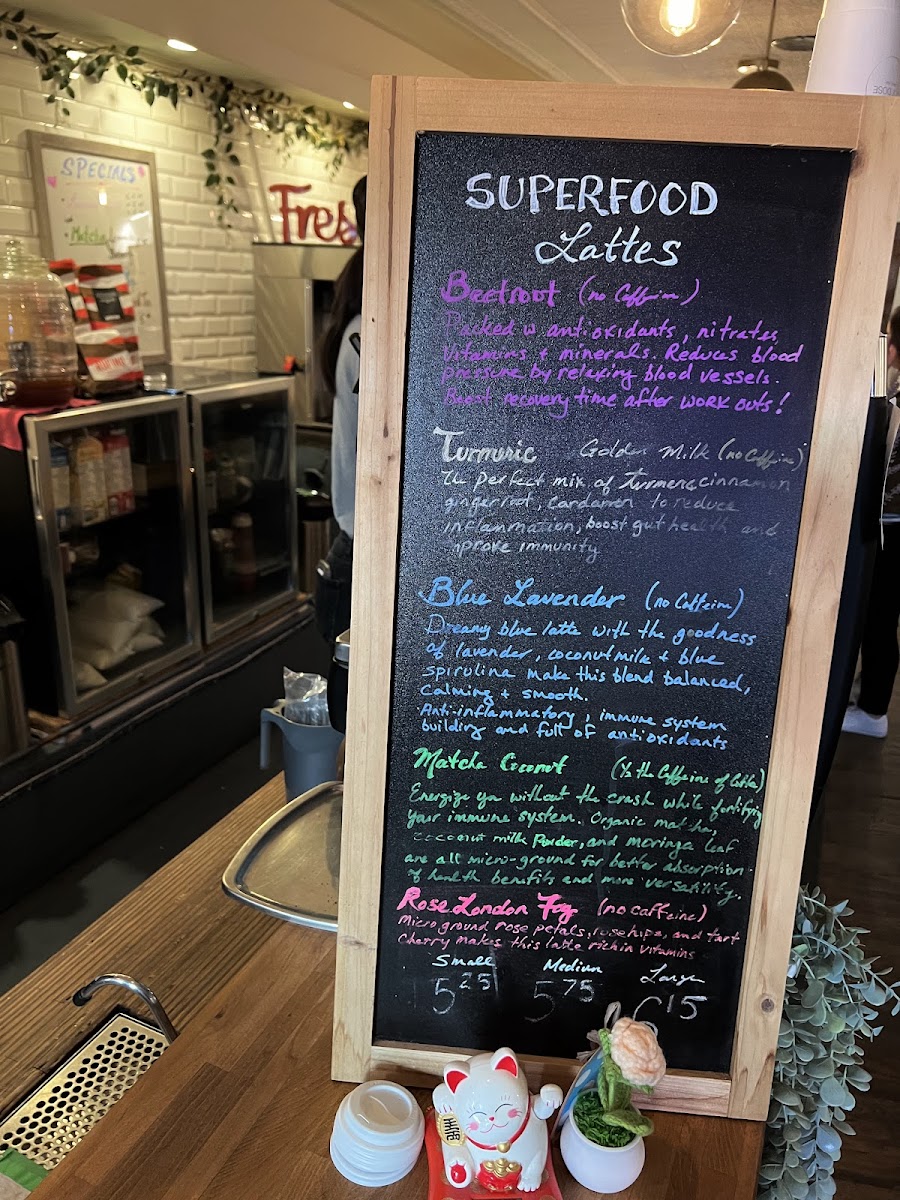 SPECIALS
Matcha
Fres
SUPERFOOD
Lattes
Beetroot (no Caffeine)
Packed w antioxidants, nitrates,
vitamins + minerals. Reduces blood
pressure by relaxing blood vessels.
Boost recovery time after work outs!
Turmeric Golden Milk (no Caffeine)
The perfect mix of turmeric cinnamon
gingerroot, cardamon to reduce
inflammation, boost gut health and
improve immunity
Blue Lavender (no Caffeine)
Dreamy blue latte with the goodness
of lavender, coconut milk + blue
spirulina make this blend balanced,
calming + smooth.
Anti-inflammatory, immune system
building and full of antioxidants
Matcha Coconut (1/2 the Caffeine of Coffee)
Energize you without the crash while fortifying
your immune system. Organic matcha,
coconut milk Powder, and moringa leaf
are all micro-ground for better absorption
of health benefits and more versatility.
Rose London Fog (no caffeine)
Micro ground rose petals, rosehips, and tart
Cherry makes this latte rich in vitamins
Small Medium Large
5 25 5 75 6 15